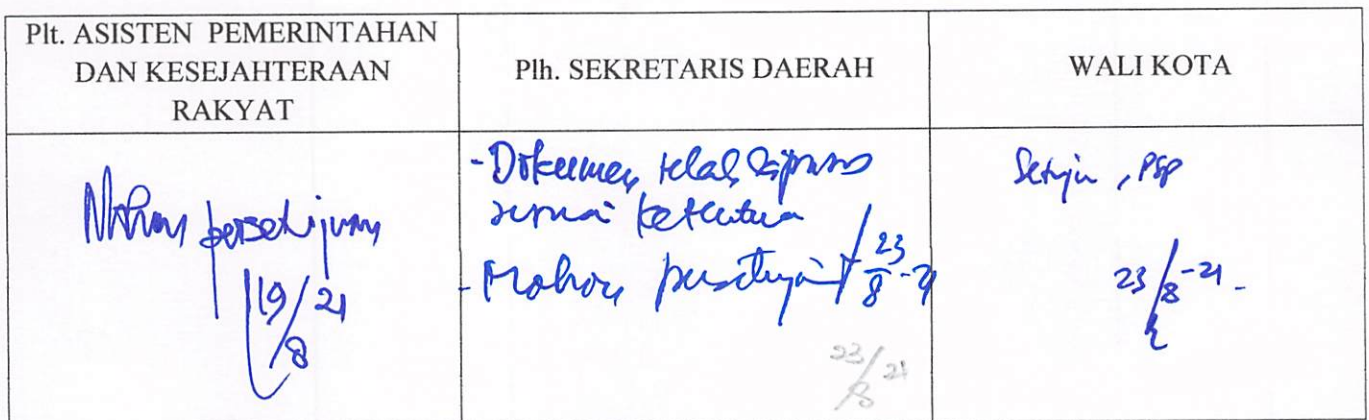 Plt. ASISTEN PEMERINTAHAN
DAN KESEJAHTERAAN
RAKYAT
Plh. SEKRETARIS DAERAH
WALI KOTA
Mohon persetujuan
19/8 21
- Dokumen telah diproses
sesuai ketentuan
- Mohon persetujuan 23/8-21
23/8 21
Setuju, PSP
23/8-21-